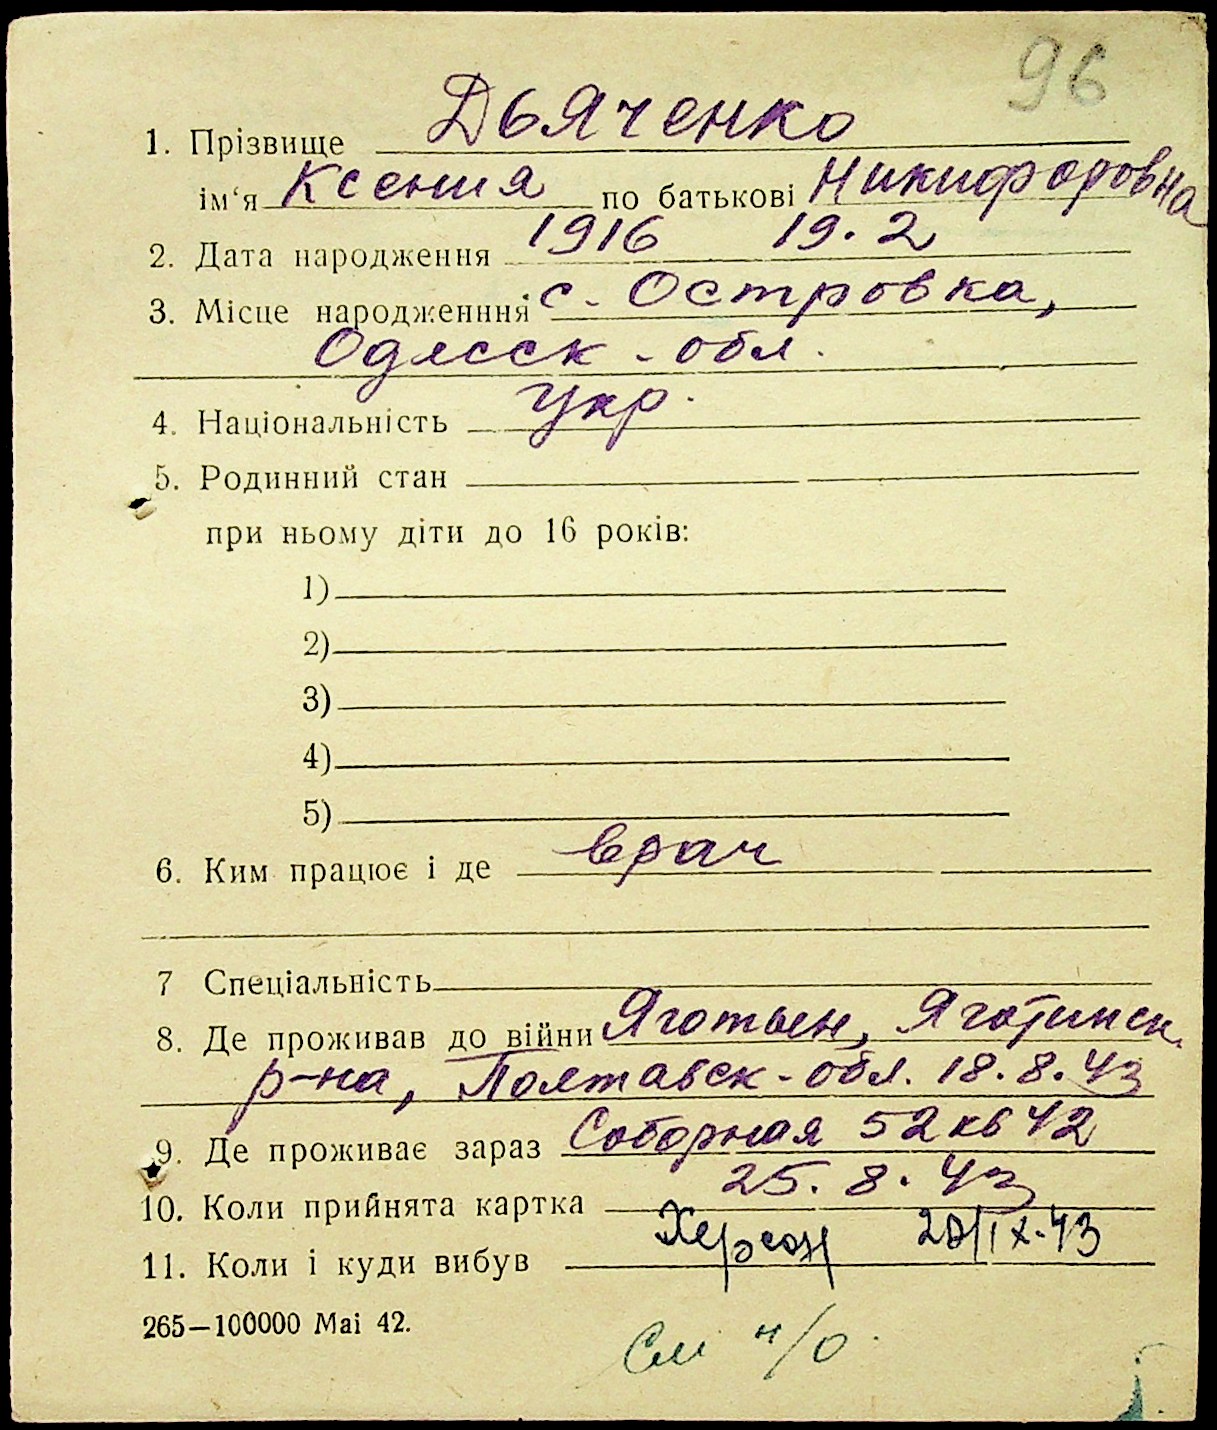 96
1. Прізвище Дьяченко
ім‘я Ксения по батькові Никифоровна
2. Дата народження 1916 19.2
3. Місце народженння с. Островка,
Одесск - обл.
4. Національність укр.
5. Родинний стан
при ньому діти до 16 років:
1)
2)
3)
4)
5)
6. Ким працює і де врач
7 Спеціальність
8. Де проживав до війни Яготын, Яготинск.
р-на, Полтавск - обл. 18.8.43
9. Де проживає зараз Соборная 52 кв 42
10. Коли прийнята картка 25. 8. 43
11. Коли і куди вибув Херсон 20/IX-43
265—100000 Маі 42.
См н/о.